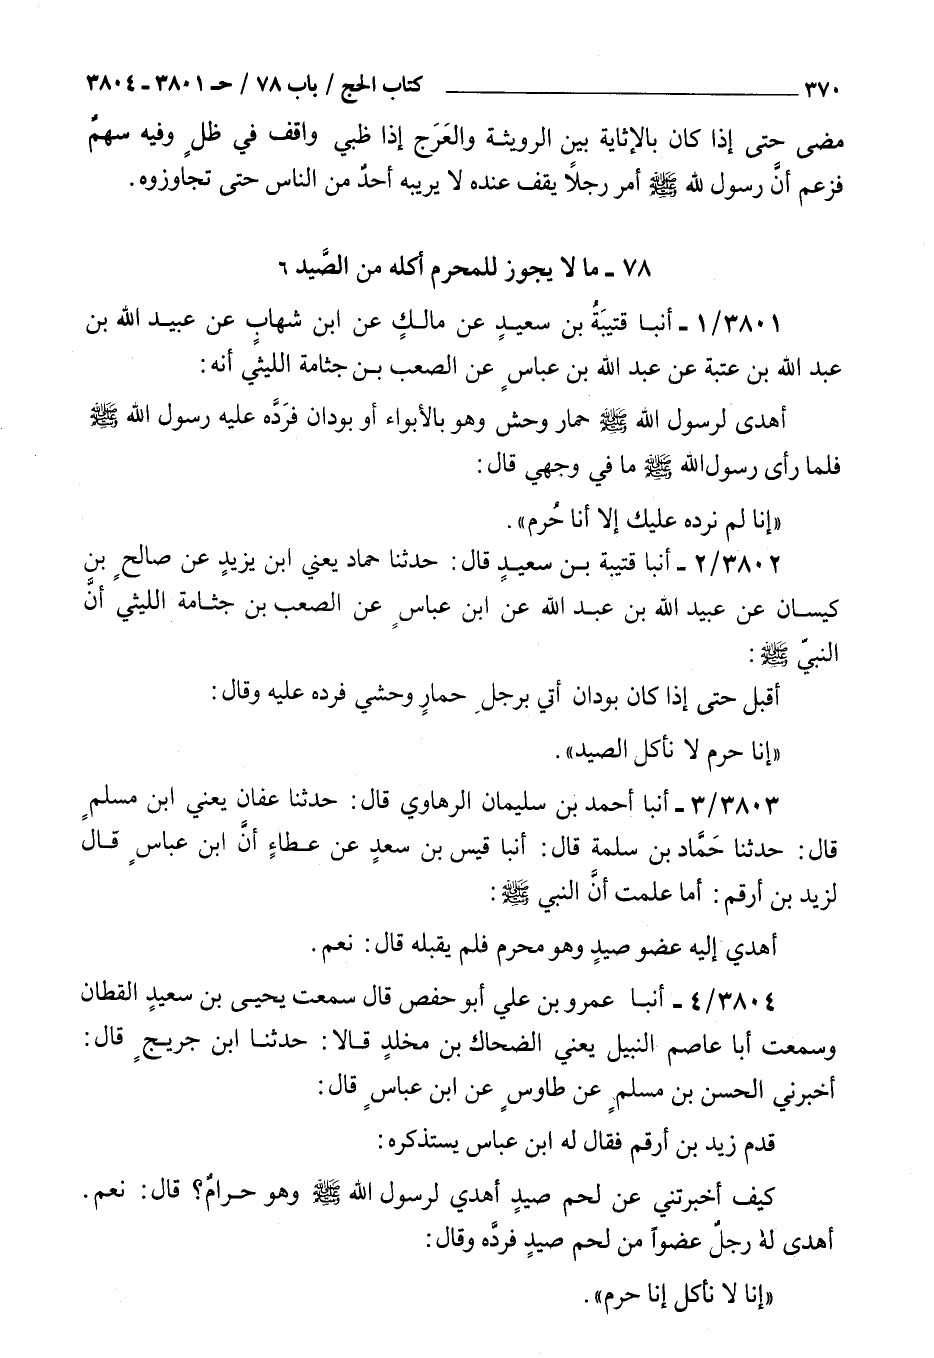 ٣٧٠ ـــــــــــــــــــــــــــــــــ كتاب الحج / باب ٧٨ / حـ ٣٨٠١ ـ ٣٨٠٤
مضى حتى إذا كان بالإثاية بين الرويثة والعَرَج إذا ظبي واقف في ظلٍ وفيه سهمٌ
فزعم أنَّ رسول لله ﷺ أمر رجلاً يقف عنده لا يريبه أحدٌ من الناس حتى تجاوزوه.
٧٨ ـ ما لا يجوز للمحرم أكله من الصَّيد ٦
١/٣٨٠١ ـ أنبا قتيبَةُ بن سعيدٍ عن مالكٍ عن ابن شهابٍ عن عبيد الله بن
عبد الله بن عتبة عن عبد الله بن عباسٍ عن الصعب بن جثامة الليثي أنه:
أهدى لرسول الله ﷺ حمار وحش وهو بالأبواء أو بودان فرَدَّه عليه رسول الله ﷺ
فلما رأى رسول الله ﷺ ما في وجهي قال:
«إنا لم نرده عليك إلا أنا حُرم».
٢/٣٨٠٢ ـ أنبا قتيبة بن سعيدٍ قال: حدثنا حماد يعني ابن يزيدٍ عن صالحٍ بن
كيسان عن عبيد الله بن عبد الله عن ابن عباسٍ عن الصعب بن جثامة الليثي أنَّ
النبيّ ﷺ:
أقبل حتى إذا كان بودان أتي برجلِ حمارٍ وحشي فرده عليه وقال:
«إنا حرم لا نأكل الصيد».
٣/٣٨٠٣ ـ أنبا أحمد بن سليمان الرهاوي قال: حدثنا عفان يعني ابن مسلمٍ
قال: حدثنا حَمَّاد بن سلمة قال: أنبا قيس بن سعدٍ عن عطاءٍ أنَّ ابن عباسٍ قال
لزيد بن أرقم: أما علمت أنَّ النبي ﷺ:
أهدي إليه عضو صيدٍ وهو محرم فلم يقبله قال: نعم.
٤/٣٨٠٤ ـ أنبا عمرو بن علي أبو حفص قال سمعت يحيى بن سعيدٍ القطان
وسمعت أبا عاصم النبيل يعني الضحاك بن مخلدٍ قالا: حدثنا ابن جريجٍ قال:
أخبرني الحسن بن مسلمٍ عن طاوسٍ عن ابن عباسٍ قال:
قدم زيد بن أرقم فقال له ابن عباس يستذكره:
كيف أخبرتني عن لحم صيدٍ أهدي لرسول الله ﷺ وهو حرامٌ؟ قال: نعم.
أهدى لهُ رجلٌ عضواً من لحم صيدٍ فردَّه وقال:
«إنا لا نأكل إنا حرم».